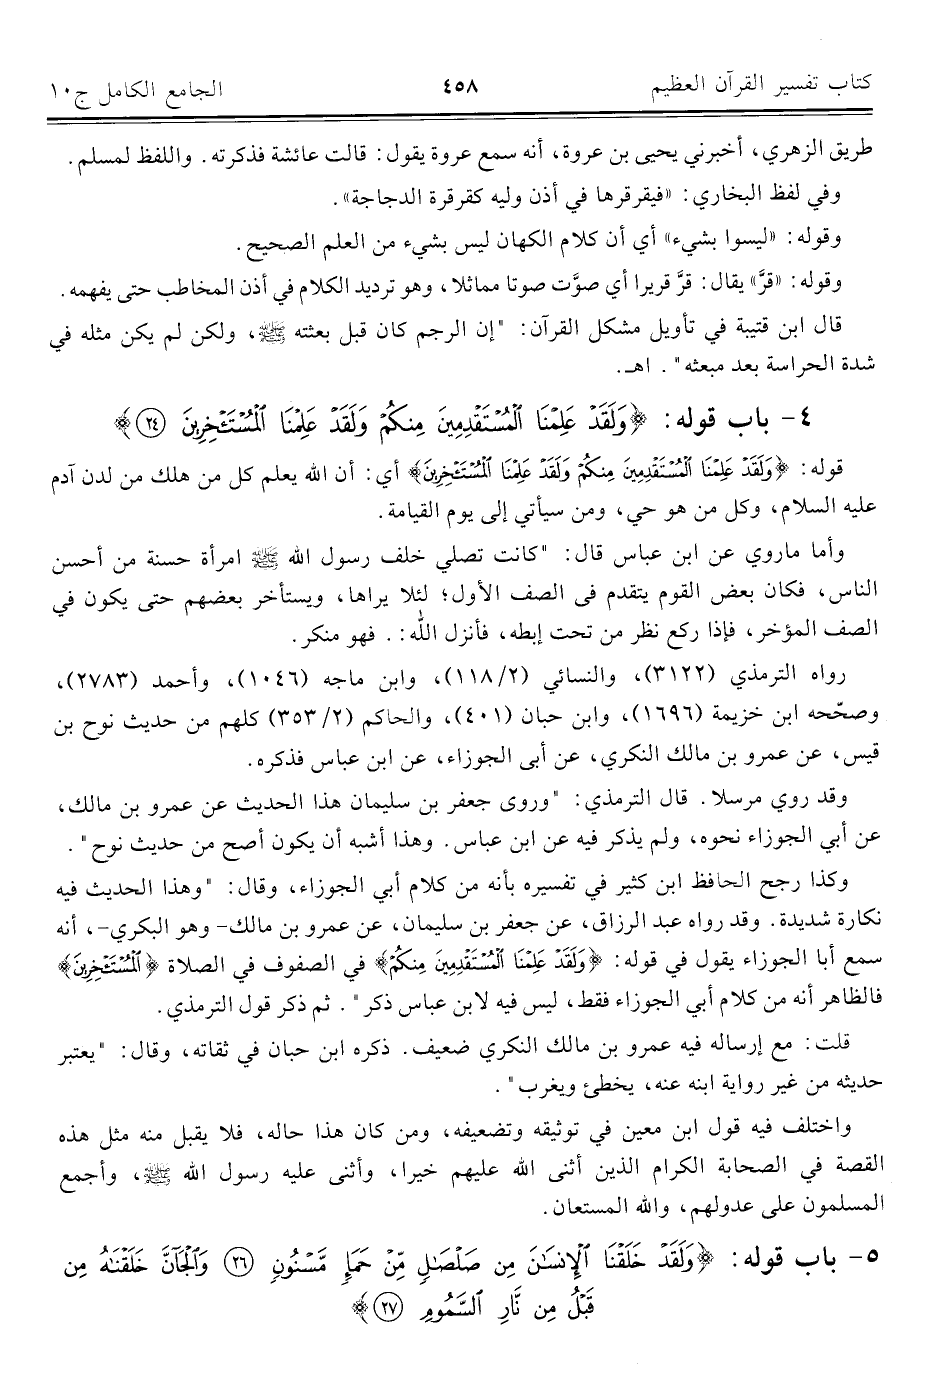 كتاب تفسير القرآن العظيم ٤٥٨ الجامع الكامل ج١٠
طريق الزهري، أخبرني يحيى بن عروة، أنه سمع عروة يقول: قالت عائشة فذكرته. واللفظ لمسلم.
وفي لفظ البخاري: «فيقرقرها في أذن وليه كقرقرة الدجاجة».
وقوله: «ليسوا بشيء» أي أن كلام الكهان ليس بشيء من العلم الصحيح.
وقوله: «قرَّ» يقال: قرَّ قريرا أي صوَّت صوتا مماثلا، وهو ترديد الكلام في أذن المخاطب حتى يفهمه.
قال ابن قتيبة في تأويل مشكل القرآن: "إن الرجم كان قبل بعثته ﷺ، ولكن لم يكن مثله في
شدة الحراسة بعد مبعثه". اهـ.
٤- باب قوله: ﴿وَلَقَدْ عَلِمْنَا الْمُسْتَقْدِمِينَ مِنكُمْ وَلَقَدْ عَلِمْنَا الْمُسْتَـْٔخِرِينَ ٢٤﴾
قوله: ﴿وَلَقَدْ عَلِمْنَا الْمُسْتَقْدِمِينَ مِنكُمْ وَلَقَدْ عَلِمْنَا الْمُسْتَـْٔخِرِينَ﴾ أي: أن الله يعلم كل من هلك من لدن آدم
عليه السلام، وكل من هو حي، ومن سيأتي إلى يوم القيامة.
وأما ماروي عن ابن عباس قال: "كانت تصلي خلف رسول الله ﷺ امرأة حسنة من أحسن
الناس، فكان بعض القوم يتقدم فى الصف الأول؛ لئلا يراها، ويستأخر بعضهم حتى يكون في
الصف المؤخر، فإذا ركع نظر من تحت إبطه، فأنزل الله:. فهو منكر.
رواه الترمذي (٣١٢٢)، والنسائي (١١٨/٢)، وابن ماجه (١٠٤٦)، وأحمد (٢٧٨٣)،
وصحّحه ابن خزيمة (١٦٩٦)، وابن حبان (٤٠١)، والحاكم (٣٥٣/٢) كلهم من حديث نوح بن
قيس، عن عمرو بن مالك النكري، عن أبى الجوزاء، عن ابن عباس فذكره.
وقد روي مرسلا. قال الترمذي: "وروى جعفر بن سليمان هذا الحديث عن عمرو بن مالك،
عن أبي الجوزاء نحوه، ولم يذكر فيه عن ابن عباس. وهذا أشبه أن يكون أصح من حديث نوح".
وكذا رجح الحافظ ابن كثير في تفسيره بأنه من كلام أبي الجوزاء، وقال: "وهذا الحديث فيه
نكارة شديدة. وقد رواه عبد الرزاق، عن جعفر بن سليمان، عن عمرو بن مالك- وهو البكري-، أنه
سمع أبا الجوزاء يقول في قوله: ﴿وَلَقَدْ عَلِمْنَا الْمُسْتَقْدِمِينَ مِنكُمْ﴾ في الصفوف في الصلاة ﴿الْمُسْتَـْٔخِرِينَ﴾
فالظاهر أنه من كلام أبي الجوزاء فقط، ليس فيه لابن عباس ذكر". ثم ذكر قول الترمذي.
قلت: مع إرساله فيه عمرو بن مالك النكري ضعيف. ذكره ابن حبان في ثقاته، وقال: "يعتبر
حديثه من غير رواية ابنه عنه، يخطئ ويغرب".
واختلف فيه قول ابن معين في توثيقه وتضعيفه، ومن كان هذا حاله، فلا يقبل منه مثل هذه
القصة في الصحابة الكرام الذين أثنى الله عليهم خيرا، وأثنى عليه رسول الله ﷺ، وأجمع
المسلمون على عدولهم، والله المستعان.
٥- باب قوله: ﴿وَلَقَدْ خَلَقْنَا الْإِنسَـٰنَ مِن صَلْصَـٰلٍ مِّنْ حَمَإٍ مَّسْنُونٍ ٢٦ وَالْجَآنَّ خَلَقْنَـٰهُ مِن
قَبْلُ مِن نَّارِ السَّمُومِ ٢٧﴾